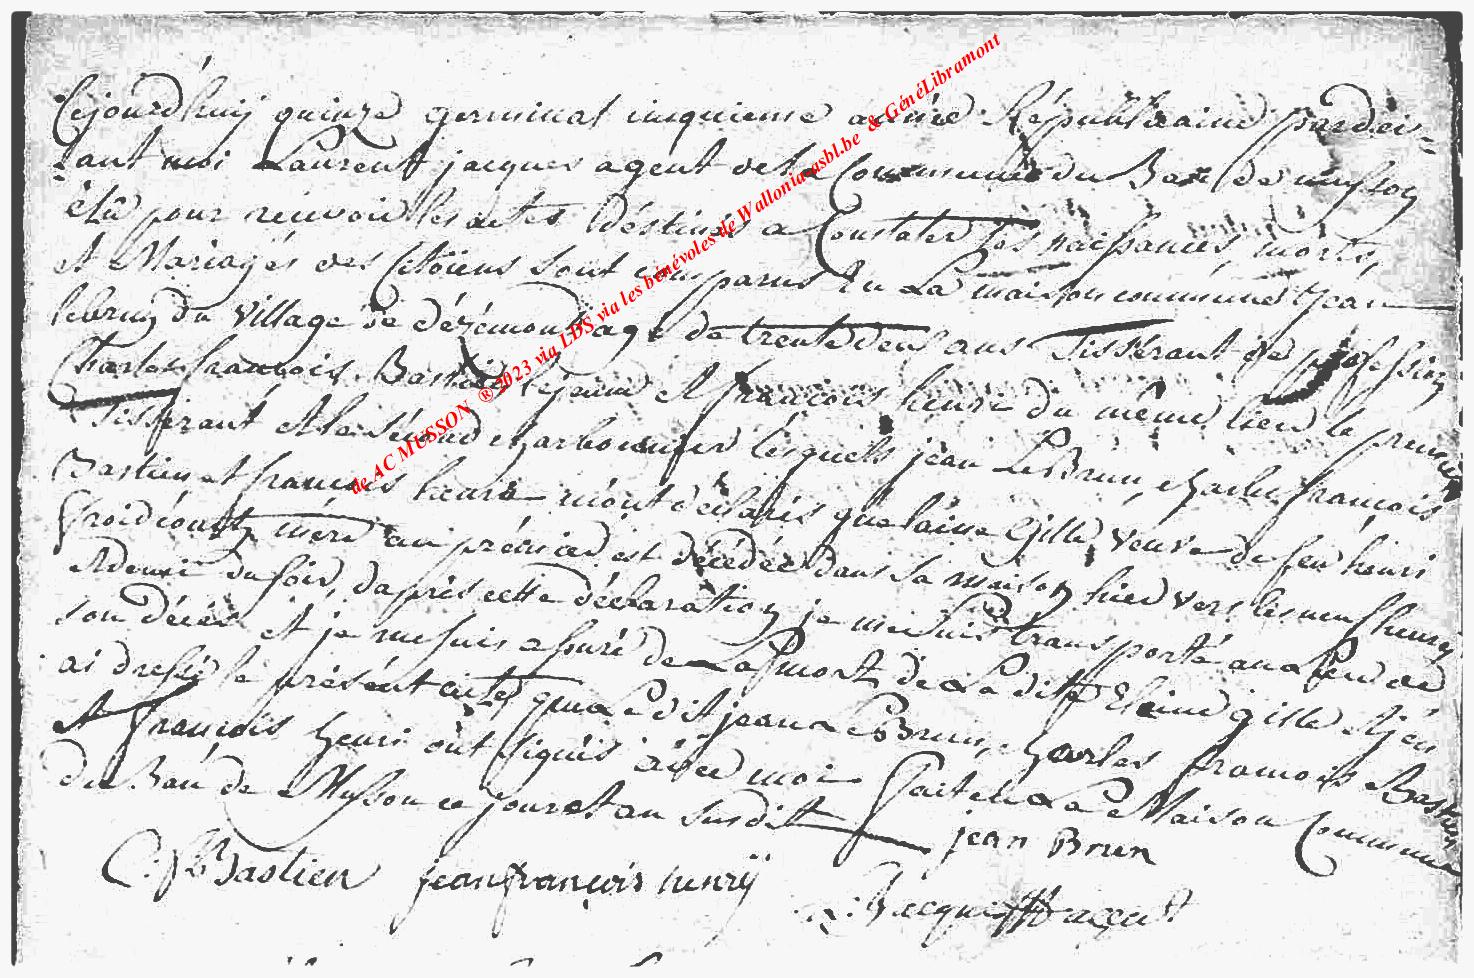 Cejourd'huy quinze germinal cinquieme année Républicaine pardei=
=vant moi Laurent jacques agent de la Commune du Ban de musson
élû pour recevoir les actes destinés a Constater les naissances, morts,
et Mariages des Citoiens sont comparus En La maison commune jean
lebrun du village de Gézémont agé de trente deux ans Tisserant de profession
Charles francois Bastien lejeune et francois henri du même lieu le premier
tisserant et le sécond charbonnier lesquels jean LeBrun, charles françois
Bastien et francois henri m'ont déclarés que laine Gille veuve de feu henri
froidcourt mére au prémier est décédée dans sa maison hier vers les neuf heures
et demie du soir, d'aprés cette déclaration je me suis transporté au lieu de
son décés et je me suis assuré de La mort de La dite Elaine gille et j'en
ai dressé le présent acte que Le dit jean LeBrun, charles francois Bastien
et françois henri ont signés avec moi fait en La Maison Commune
du Ban de Musson ce jour et an susdit
jean Brun
C. f. Bastien jean françois henrÿ
L. Jacques agent
de AC MUSSON ® 2023 via LDS via les bénévoles de Wallonia-asbl.be & GénéLibramont